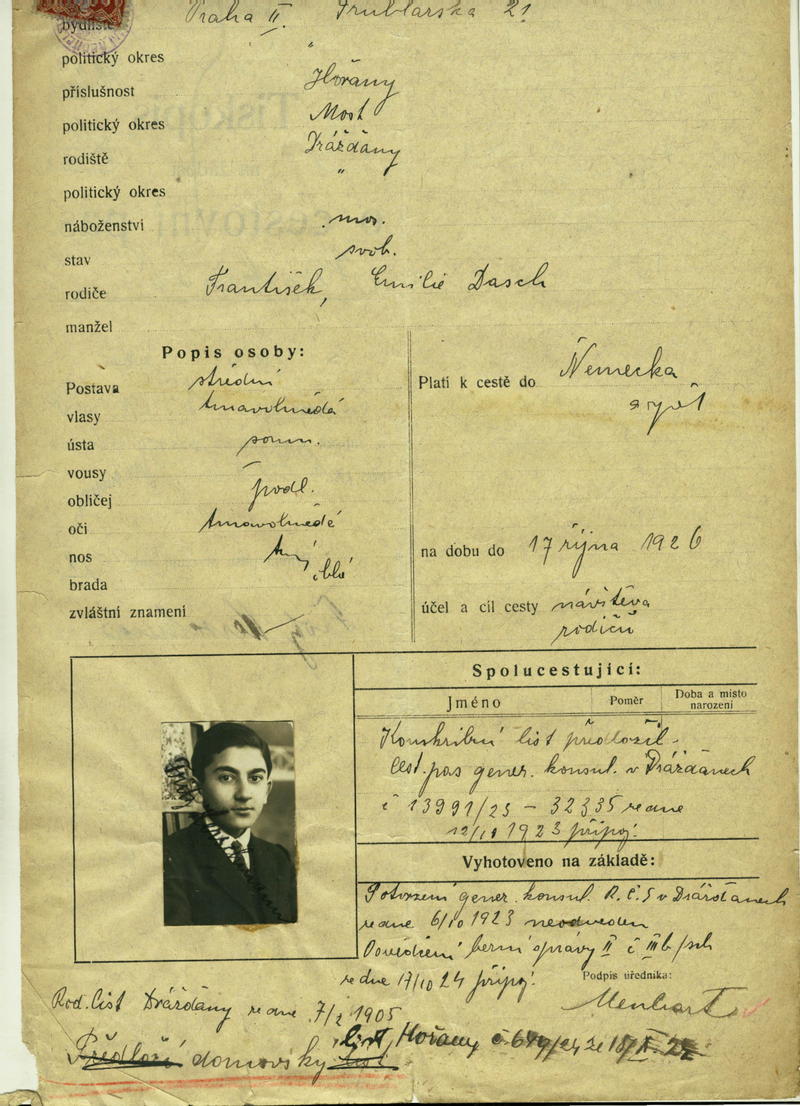 bydliště Praha II. Truhlářská 21
politický okres "
příslušnost Hořany
politický okres Most
rodiště Drážďany
politický okres "
náboženství mos.
stav svob.
rodiče František, Emilie Dasch
manžel
Popis osoby:
Postava střední
vlasy tmavohnědá
ústa soum.
vousy —
obličej podl.
oči tmavohnědé
nos
brada
zvláštní znamení
Platí k cestě do Německa
a zpět
na dobu do 17 října 1926
účel a cíl cesty návštěva
rodičů
Spolucestující:
Jméno Poměr Doba a místo narození
Konskribní list předložil.
Cest. pas gener. konsul. v Drážďanech
č 13991/23 - 32335 ze dne
1923 připoj.
Vyhotoveno na základě:
Potvrzení gener. konsul. R.Č.S v Drážďanech
ze dne 6/10 1923 neodveden
Osvědčení berní správy II č III b/
ze dne 17/10 24 připoj.
Podpis úředníka:
Menhart
Rod. list Drážďany ze dne 7/2 1905
Předloží domovský list Hořany č 679/24 ze